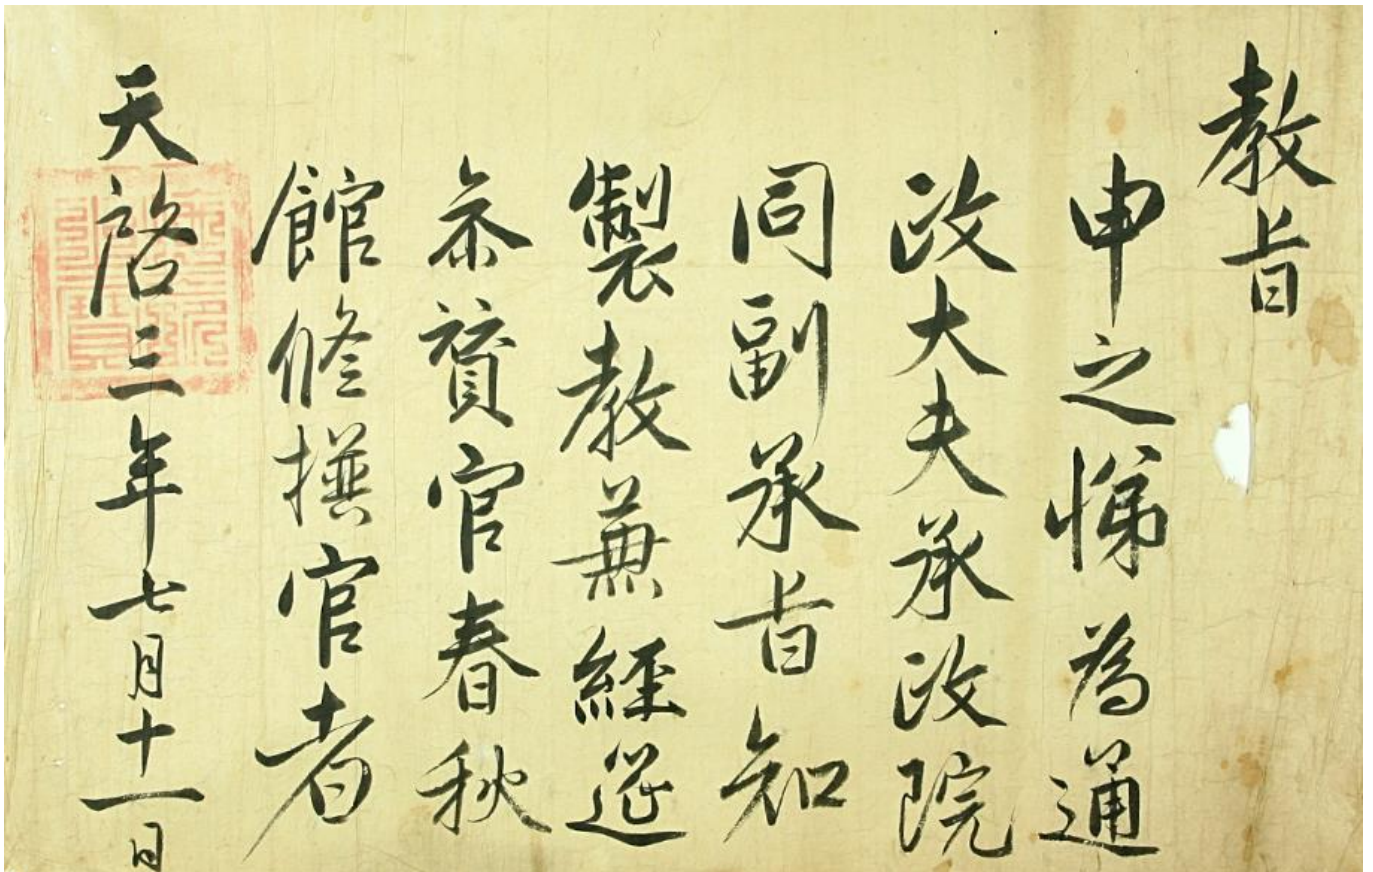 教旨
申之悌為通
政大夫承政院
同副承旨知
製教兼經筵
參賛官春秋
館修撰官者
天啓三年七月十一日